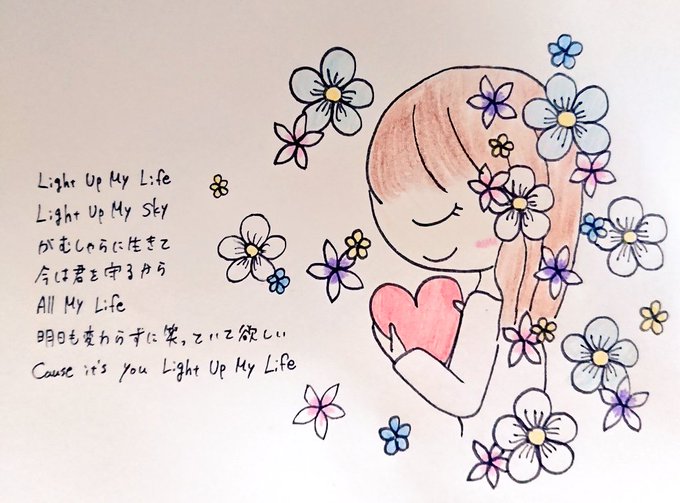 Light Up My Life
Light Up My Sky
がむしゃらに生きて
今は君を守るから
All My Life
明日も変わらずに笑っていて欲しい
Cause it's you Light Up My Life